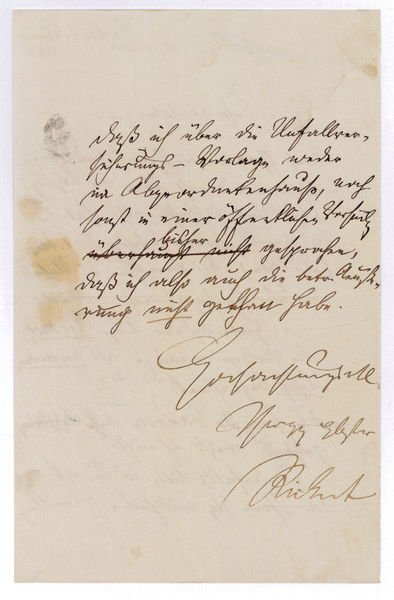 daß ich über die Unfallver-
sicherungs-Vorlage weder
im Abgeordnetenhause, noch
sonst in einer öffentlichen Versml
bisher
überhaupt nicht gesprochen,
daß ich also auch die betr. Aeuße-
rung nicht gethan habe.
Hochachtungsvoll
Ihr ergebenster
Rickert